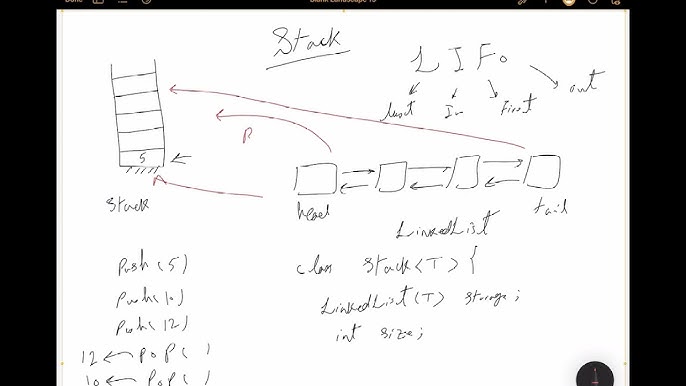 Done
Blank Landscape 13
Stack
L I F o
Last In First out
5
R
Stack
head
tail
LinkedList
Push(5)
Push(10)
Push(12)
12 ← POP( )
10 ← POP( )
class Stack<T> {
LinkedList<T> storage;
int size;